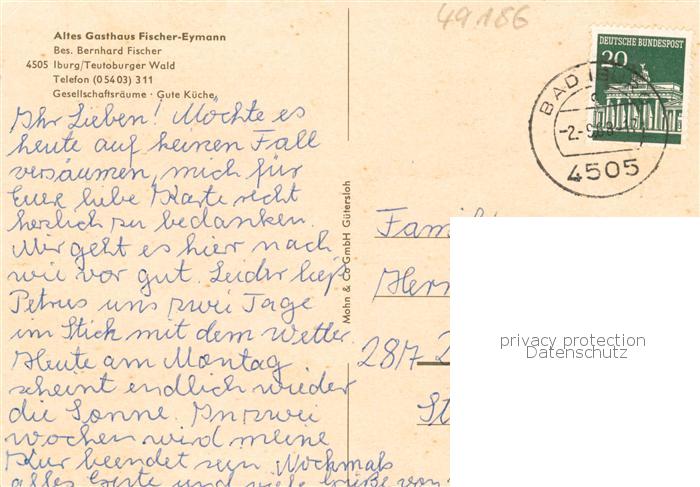 49186
Altes Gasthaus Fischer-Eymann
Bes. Bernhard Fischer
4505 Iburg/Teutoburger Wald
Telefon (05403) 311
Gesellschaftsräume · Gute Küche
DEUTSCHE BUNDESPOST
20
BAD IBURG
-2.-9.68-17
4505
Ihr Lieben! Möchte es
heute auf keinen Fall
versäumen, mich für
Eure liebe Karte recht
herzlich zu bedanken.
Mir geht es hier nach
wie vor gut. Leider ließ
Petrus uns zwei Tage
im Stich mit dem Wetter.
Heute am Montag
scheint endlich wieder
die Sonne. In zwei
Wochen wird meine
Kur beendet sein. Nochmals
alles Gute und viele Grüße von
Mohn & Co GmbH Gütersloh
Famil
Herr
287
St
privacy protection
Datenschutz